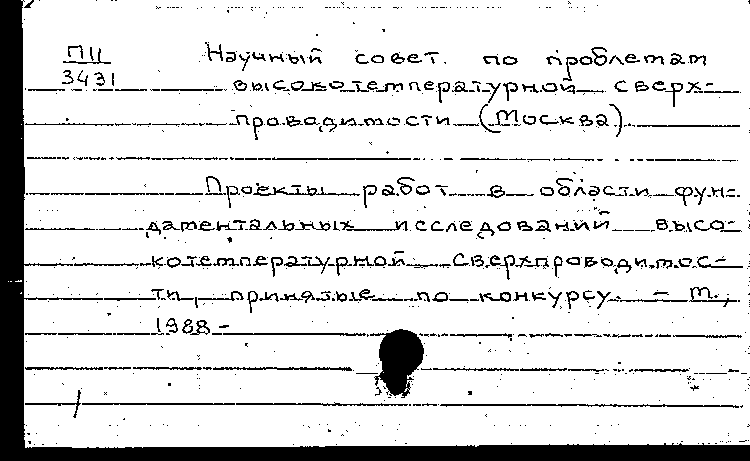 ПII
3431
Научный совет по проблемам
высокотемпературной сверх-
проводимости (Москва)
Проекты работ в области фун-
даментальных исследований высо-
котемпературной сверхпроводимос-
ти, принятые по конкурсу. - М.,
1988-